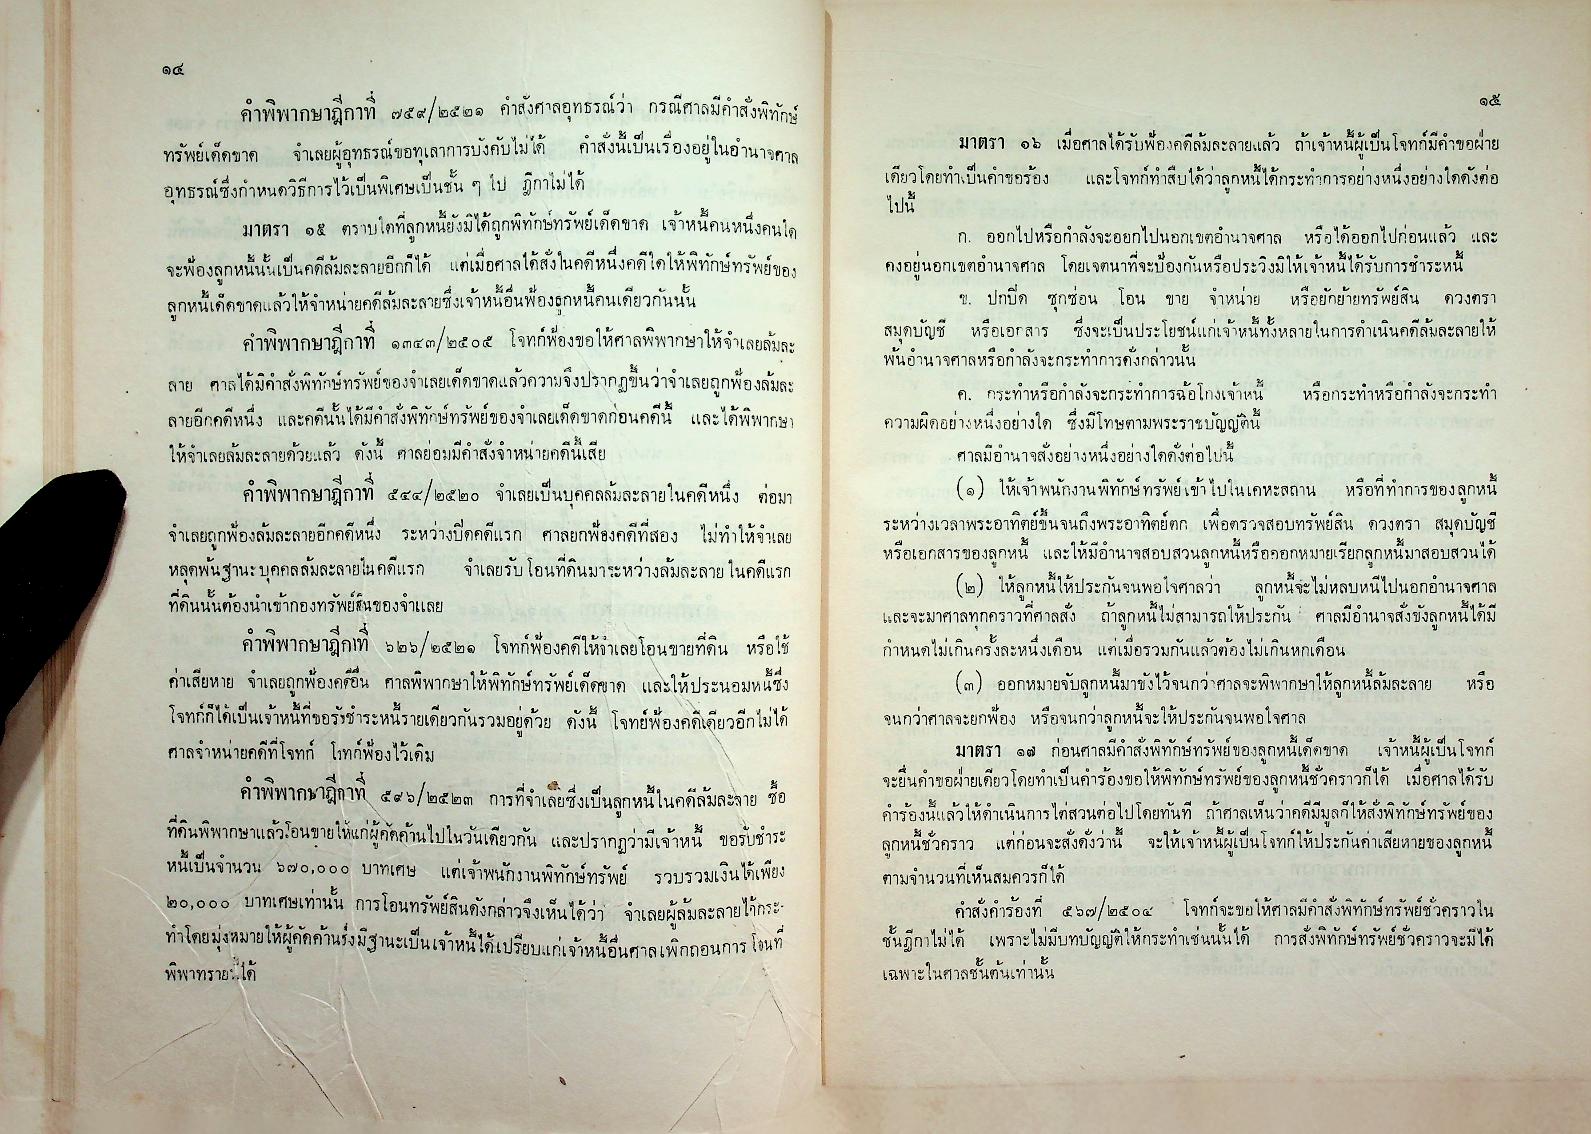 ๑๔
คำพิพากษาฎีกาที่ ๗๕๙/๒๕๒๑ คำสั่งศาลอุทธรณ์ว่า กรณีศาลมีคำสั่งพิทักษ์
ทรัพย์เด็ดขาด จำเลยผู้อุทธรณ์ขอทุเลาการบังคับไม่ได้ คำสั่งนี้เป็นเรื่องอยู่ในอำนาจศาล
อุทธรณ์ซึ่งกำหนดวิธีการไว้เป็นพิเศษเป็นชั้น ๆ ไป ฎีกาไม่ได้
มาตรา ๑๕ ตราบใดที่ลูกหนี้ยังมิได้ถูกพิทักษ์ทรัพย์เด็ดขาด เจ้าหนี้คนหนึ่งคนใด
จะฟ้องลูกหนี้นั้นเป็นคดีล้มละลายอีกก็ได้ แต่เมื่อศาลได้สั่งในคดีหนึ่งคดีใดให้พิทักษ์ทรัพย์ของ
ลูกหนี้เด็ดขาดแล้วให้จำหน่ายคดีล้มละลายซึ่งเจ้าหนี้อื่นฟ้องลูกหนี้คนเดียวกันนั้น
คำพิพากษาฎีกาที่ ๑๓๔๓/๒๕๐๕ โจทก์ฟ้องขอให้ศาลพิพากษาให้จำเลยล้มละ
ลาย ศาลได้มีคำสั่งพิทักษ์ทรัพย์ของจำเลยเด็ดขาดแล้วความจึงปรากฏขึ้นว่าจำเลยถูกฟ้องล้มละ
ลายอีกคดีหนึ่ง และคดีนั้นได้มีคำสั่งพิทักษ์ทรัพย์ของจำเลยเด็ดขาดก่อนคดีนี้ และได้พิพากษา
ให้จำเลยล้มละลายด้วยแล้ว ดังนี้ ศาลย่อมมีคำสั่งจำหน่ายคดีนี้เสีย
คำพิพากษาฎีกาที่ ๕๔๔/๒๕๒๐ จำเลยเป็นบุคคลล้มละลายในคดีหนึ่ง ต่อมา
จำเลยถูกฟ้องล้มละลายอีกคดีหนึ่ง ระหว่างปิดคดีแรก ศาลยกฟ้องคดีที่สอง ไม่ทำให้จำเลย
หลุดพ้นฐานะบุคคลล้มละลายในคดีแรก จำเลยรับโอนที่ดินมาระหว่างล้มละลายในคดีแรก
ที่ดินนั้นต้องนำเข้ากองทรัพย์สินของจำเเลย
คำพิพากษาฎีกาที่ ๖๒๖/๒๕๒๑ โจทก์ฟ้องคดีให้จำเลยโอนขายที่ดิน หรือใช้
ค่าเสียหาย จำเลยถูกฟ้องคดีอื่น ศาลพิพากษาให้พิทักษ์ทรัพย์เด็ดขาด และให้ประนอมหนี้ซึ่ง
โจทก์ก็ได้เป็นเจ้าหนี้ที่ขอรับชำระหนี้รายเดียวกันรวมอยู่ด้วย ดังนี้ โจทย์ฟ้องคดีเดียวอีกไม่ได้
ศาลจำหน่ายคดีที่โจทก์ โทท์ก์ฟ้องไว้เดิม
คำพิพากษาฎีกาที่ ๕๙๖/๒๕๒๓ การที่จำเลยซึ่งเป็นลูกหนี้ในคดีล้มละลาย ซื้อ
ที่ดินพิพากษาแล้วโอนขายให้แก่ผู้คัดค้านไปในวันเดียวกัน และปรากฏว่ามีเจ้าหนี้ ขอรับชำระ
หนี้เป็นจำนวน ๖๗๐,๐๐๐ บาทเศษ แต่เจ้าพนักงานพิทักษ์ทรัพย์ รวบรวมเงินได้เพียง
๒๐,๐๐๐ บาทเศษเท่านั้น การโอนทรัพย์สินดังกล่าวจึงเห็นได้ว่า จำเลยผู้ล้มละลายได้กระ-
ทำโดยมุ่งหมายให้ผู้คัดค้านซึ่งมีฐานะเป็นเจ้าหนี้ได้เปรียบแก่เจ้าหนี้อื่นศาลเพิกถอนการโอนที่
พิพาทรายนี้ได้
๑๕
มาตรา ๑๖ เมื่อศาลได้รับฟ้องคดีล้มละลายแล้ว ถ้าเจ้าหนี้ผู้เป็นโจทก์มีคำขอฝ่าย
เดียวโดยทำเป็นคำขอร้อง และโจทก์ทำสืบได้ว่าลูกหนี้ได้กระทำการอย่างหนึ่งอย่างใดดังต่อ
ไปนี้
ก. ออกไปหรือกำลังจะออกไปนอกเขตอำนาจศาล หรือได้ออกไปก่อนแล้ว และ
คงอยู่นอกเขตอำนาจศาล โดยเจตนาที่จะป้องกันหรือประวิงมิให้เจ้าหนี้ได้รับการชำระหนี้
ข. ปกปิด ซุกซ่อน โอน ขาย จำหน่าย หรือยักย้ายทรัพย์สิน ดวงตรา
สมุดบัญชี หรือเอกสาร ซึ่งจะเป็นประโยชน์แก่เจ้าหนี้ทั้งหลายในการดำเนินคดีล้มละลายให้
พ้นอำนาจศาลหรือกำลังจะกระทำการดังกล่าวนั้น
ค. กระทำหรือกำลังจะกระทำการฉ้อโกงเจ้าหนี้ หรือกระทำหรือกำลังจะกระทำ
ความผิดอย่างหนึ่งอย่างใด ซึ่งมีโทษตามพระราชบัญญัตินี้
ศาลมีอำนาจสั่งอย่างหนึ่งอย่างใดดังต่อไปนี้
(๑) ให้เจ้าพนักงานพิทักษ์ทรัพย์เข้าไปในเคหะสถาน หรือที่ทำการของลูกหนี้
ระหว่างเวลาพระอาทิตย์ขึ้นจนถึงพระอาทิตย์ตก เพื่อตรวจสอบทรัพย์สิน ดวงตรา สมุดบัญชี
หรือเอกสารของลูกหนี้ และให้มีอำนาจสอบสวนลูกหนี้หรือออกหมายเรียกลูกหนี้มาสอบสวนได้
(๒) ให้ลูกหนี้ให้ประกันจนพอใจศาลว่า ลูกหนี้จะไม่หลบหนีไปนอกอำนาจศาล
และจะมาศาลทุกคราวที่ศาลสั่ง ถ้าลูกหนี้ไม่สามารถให้ประกัน ศาลมีอำนาจสั่งขังลูกหนี้ได้มี
กำหนดไม่เกินครั้งละหนึ่งเดือน แต่เมื่อรวมกันแล้วต้องไม่เกินหกเดือน
(๓) ออกหมายจับลูกหนี้มาขังไว้จนกว่าศาลจะพิพากษาให้ลูกหนี้ล้มละลาย หรือ
จนกว่าศาลจะยกฟ้อง หรือจนกว่าลูกหนี้จะให้ประกันจนพอใจศาล
มาตรา ๑๗ ก่อนศาลมีคำสั่งพิทักษ์ทรัพย์ของลูกหนี้เด็ดขาด เจ้าหนี้ผู้เป็นโจทก์
จะยื่นคำขอฝ่ายเดียวโดยทำเป็นคำร้องขอให้พิทักษ์ทรัพย์ของลูกหนี้ชั่วคราวก็ได้ เมื่อศาลได้รับ
คำร้องนี้แล้วให้ดำเนินการไต่สวนต่อไปโดยทันที ถ้าศาลเห็นว่าคดีมีมูลก็ให้สั่งพิทักษ์ทรัพย์ของ
ลูกหนี้ชั่วคราว แต่ก่อนจะสั่งดังว่านี้ จะให้เจ้าหนี้ผู้เป็นโจทก์ให้ประกันค่าเสียหายของลูกหนี้
ตามจำนวนที่เห็นสมควรก็ได้
คำสั่งคำร้องที่ ๕๖๗/๒๕๐๔ โจทก์จะขอให้ศาลมีคำสั่งพิทักษ์ทรัพย์ชั่วคราวใน
ชั้นฎีกาไม่ได้ เพราะไม่มีบทบัญญัติให้กระทำเช่นนั้นได้ การสั่งพิทักษ์ทรัพย์ชั่วคราวจะมีได้
เฉพาะในศาลชั้นต้นเท่านั้น